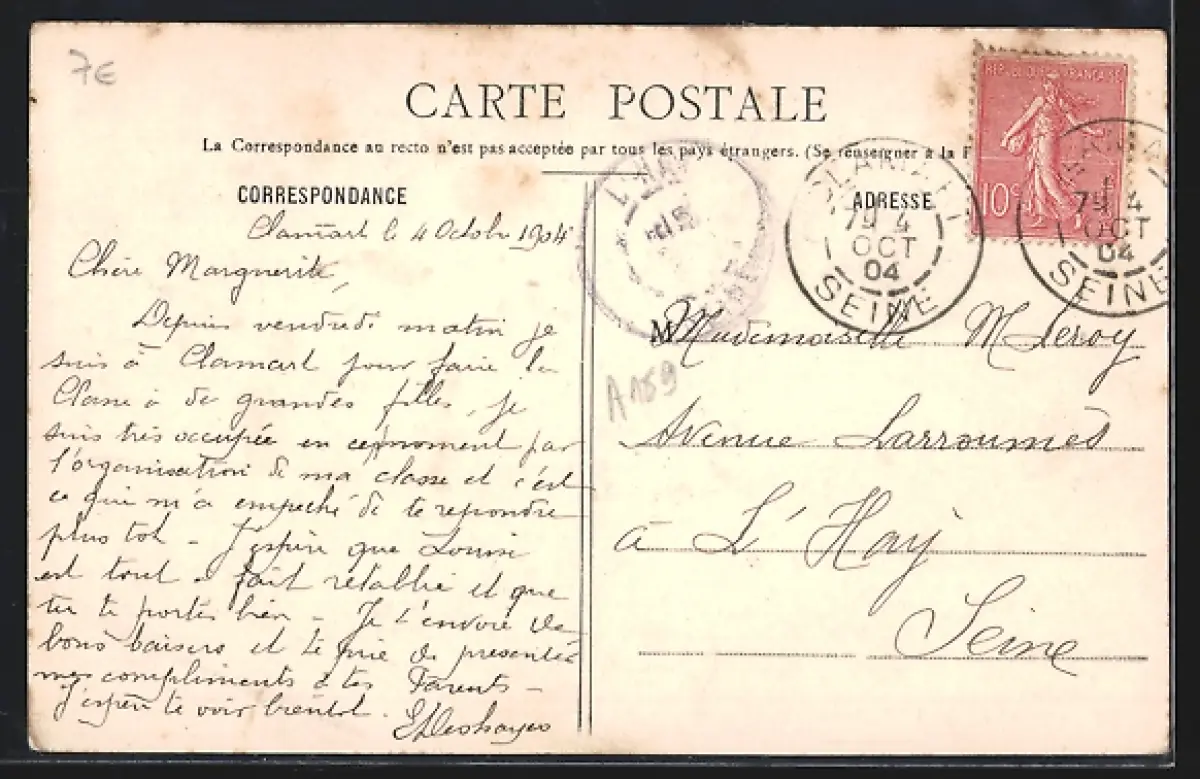 7€
CARTE POSTALE
La Correspondance au recto n'est pas acceptée par tous les pays étrangers. (Se renseigner à la P
REPUBLIQUE FRANÇAISE
10c
CORRESPONDANCE
Clamart le 4 Octobre 1904
Chère Marguerite,
Depuis vendredi matin je
suis à Clamart pour faire la
Classe à de grandes filles, je
suis très occupée en ce moment par
l'organisation de ma classe et c'est
ce qui m'a empeché de te repondre
plus tot - J'espère que Louise
est tout à fait retablie et que
tu te portes bien - Je t'envoie de
bons baisers et te prie de presenter
mes compliments à tes Parents -
J'espère te voir bientot.
E Deshayes
L'HAY
SEINE
CLAMART
7E 4
OCT
04
SEINE
ADRESSE
CLAMART
7E 4
OCT
04
SEINE
M
Mademoiselle M Leroy
A169
Avenue Larroumès
à L'Hay
Seine